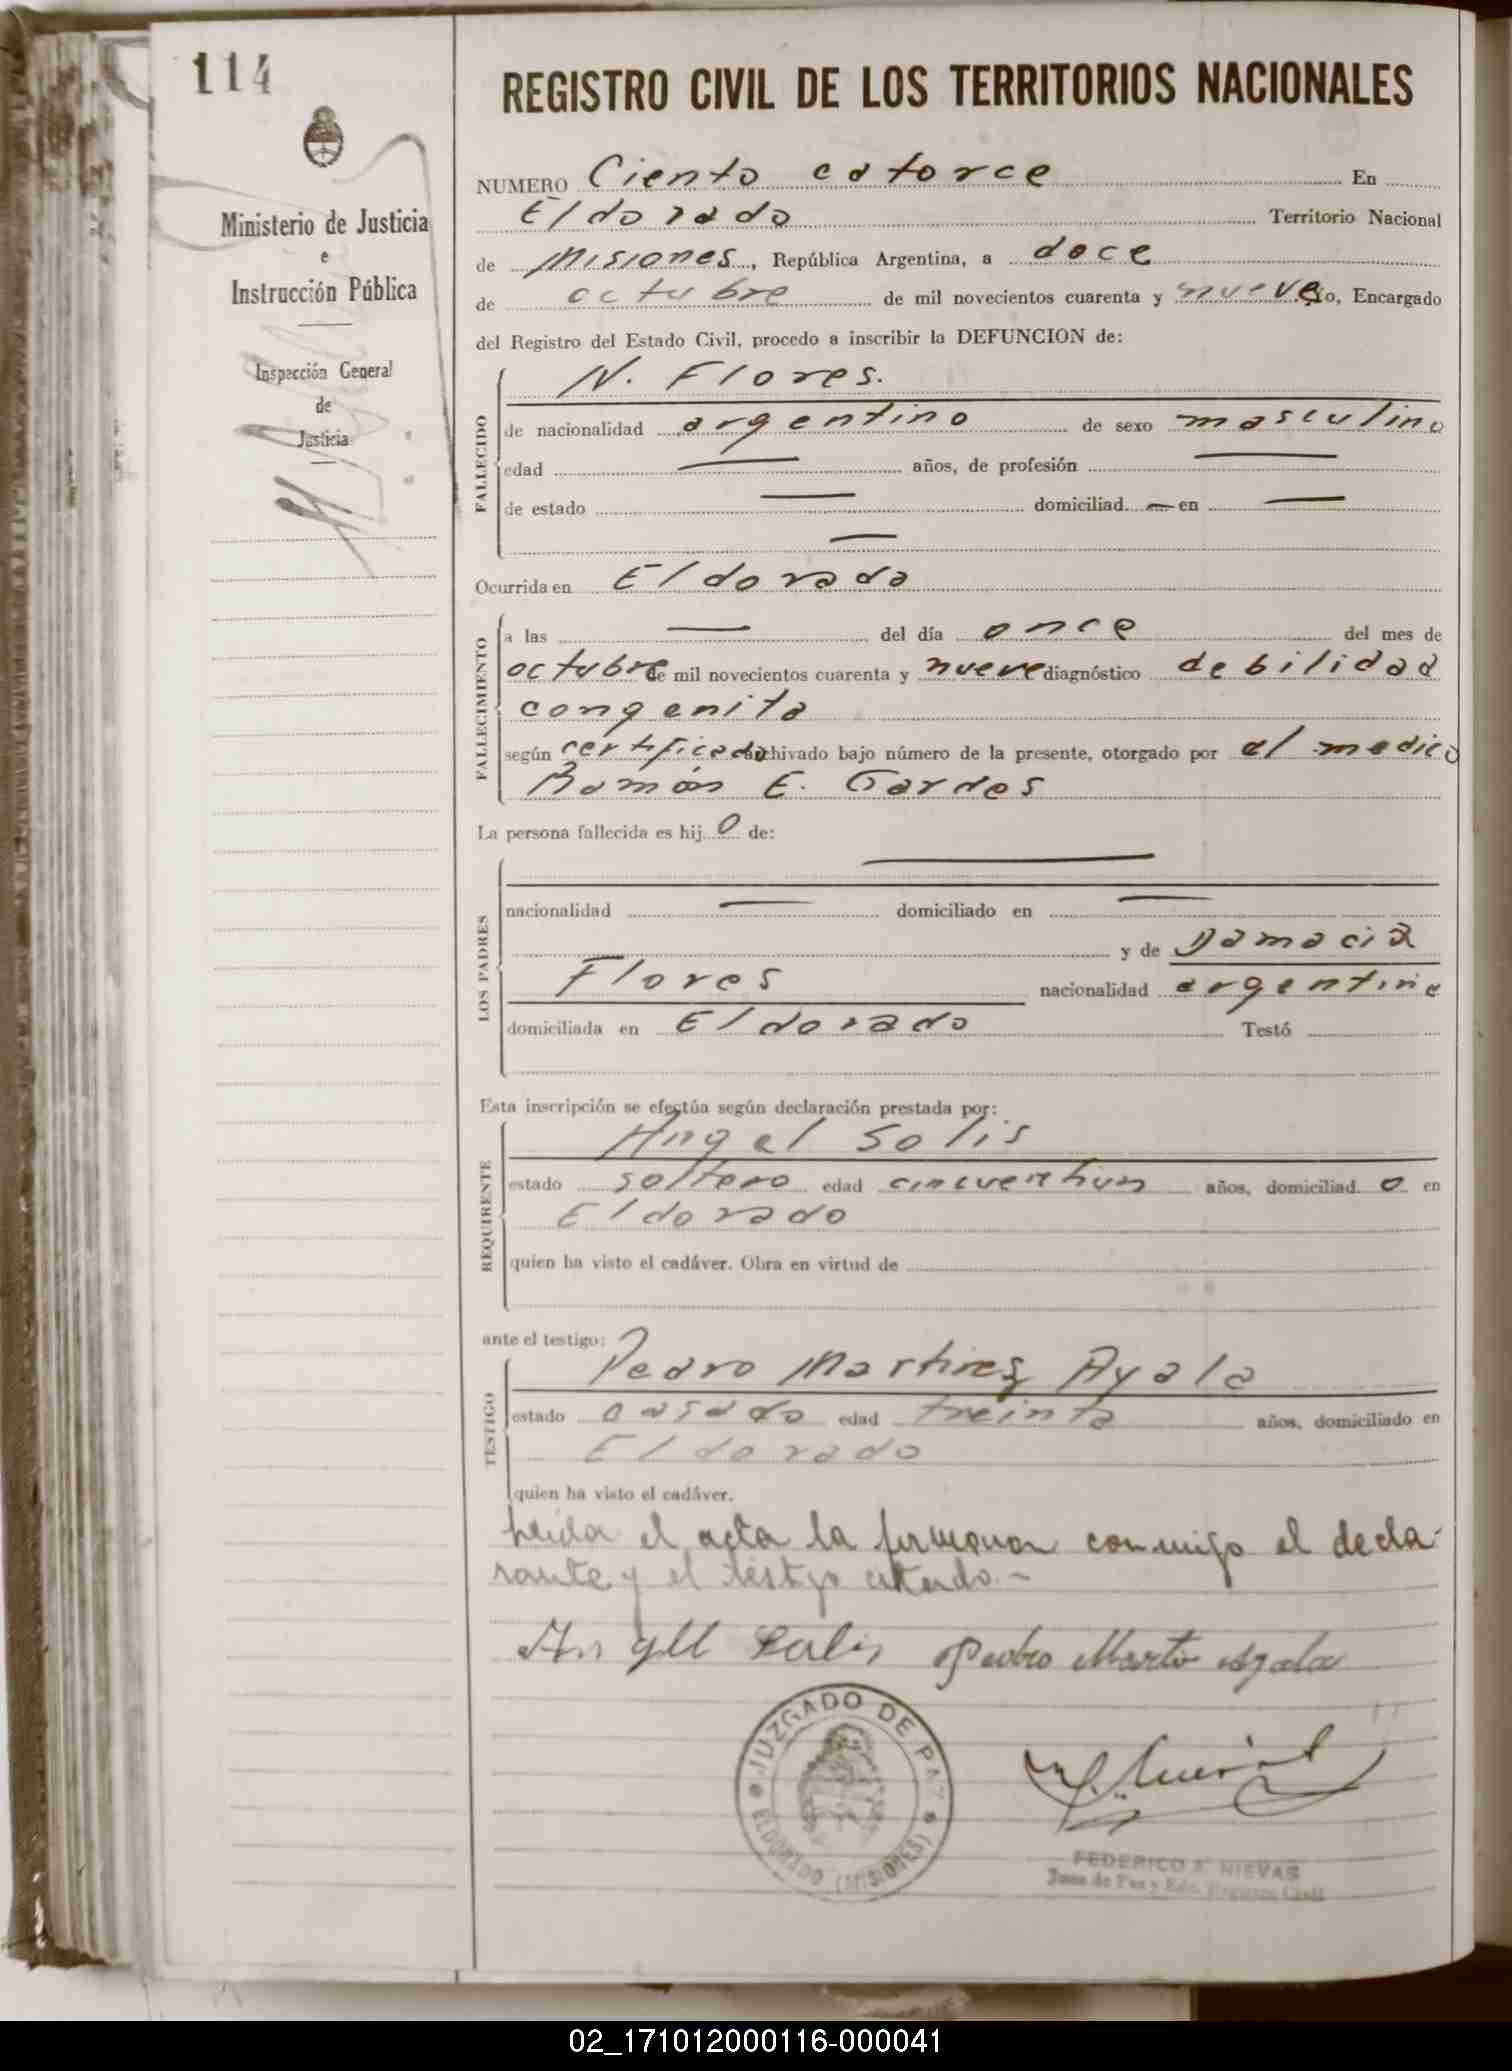 114
Ministerio de Justicia
e
Instrucción Pública
Inspección General
de
Justicia
REGISTRO CIVIL DE LOS TERRITORIOS NACIONALES
NUMERO Ciento catorce En
Eldorado Territorio Nacional
de Misiones, República Argentina, a doce
de octubre de mil novecientos cuarenta y nueve yo, Encargado
del Registro del Estado Civil, procedo a inscribir la DEFUNCION de:
FALLECIDO
N. Flores.
de nacionalidad argentino de sexo masculino
edad — años, de profesión —
de estado — domiciliad — en —
—
Ocurrida en Eldorado
FALLECIMIENTO
a las — del día once del mes de
octubre de mil novecientos cuarenta y nueve diagnóstico debilidad
congenita
según certificado archivado bajo número de la presente, otorgado por el medico
Román E. Gardes
La persona fallecida es hij o de:
LOS PADRES
—
nacionalidad — domiciliado en —
y de Damacia
Flores nacionalidad argentina
domiciliada en Eldorado Testó
Esta inscripción se efectúa según declaración prestada por:
REQUIRENTE
Angel Solis
estado soltero edad cincuentiun años, domiciliad o en
Eldorado
quien ha visto el cadáver. Obra en virtud de
ante el testigo:
TESTIGO
Pedro Martires Ayala
estado casado edad treinta años, domiciliado en
Eldorado
quien ha visto el cadáver.
Leida el acta la firmaron conmigo el decla-
rante y el testigo citado.-
Angel Solis Pedro Marti Ayala
JUZGADO DE PAZ
ELDORADO (MISIONES)
FEDERICO A. NIEVAS
Juez de Paz y Edo. Registro Civil
02_171012000116-000041